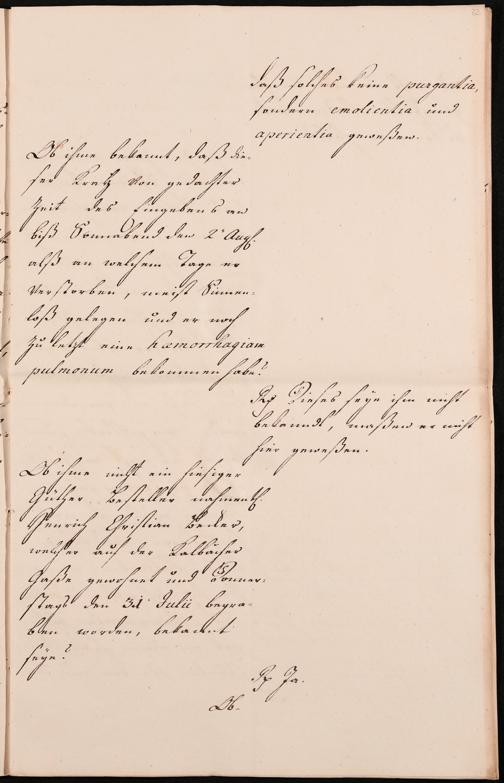 daß solches keine purgantia,
sondern emolientia und
aperientia geweßen.
Ob ihme bekannt, daß die-
ser Kratz von gedachter
Zeit des Eingebens an
biß Sonnabend den 2ⁿ Aug.
alß an welchem Tage er
verstorben, meist Sinnen-
loß gelegen und er noch
zu letzt eine hæmorrhagiam
pulmonum bekommen habe?
Rx Dieses seye ihm nicht
bekanndt, maßen er nicht
hier geweßen.
Ob ihme nicht ein hiesiger
Güther Besteller nahmentl.
Henrich Christian Becker,
welcher auf der Kalbächer
Gaße gewohnet und Donner-
stags den 31 Julii begra-
ben worden, bekannt
seye?
Rx Ja.
Ob-